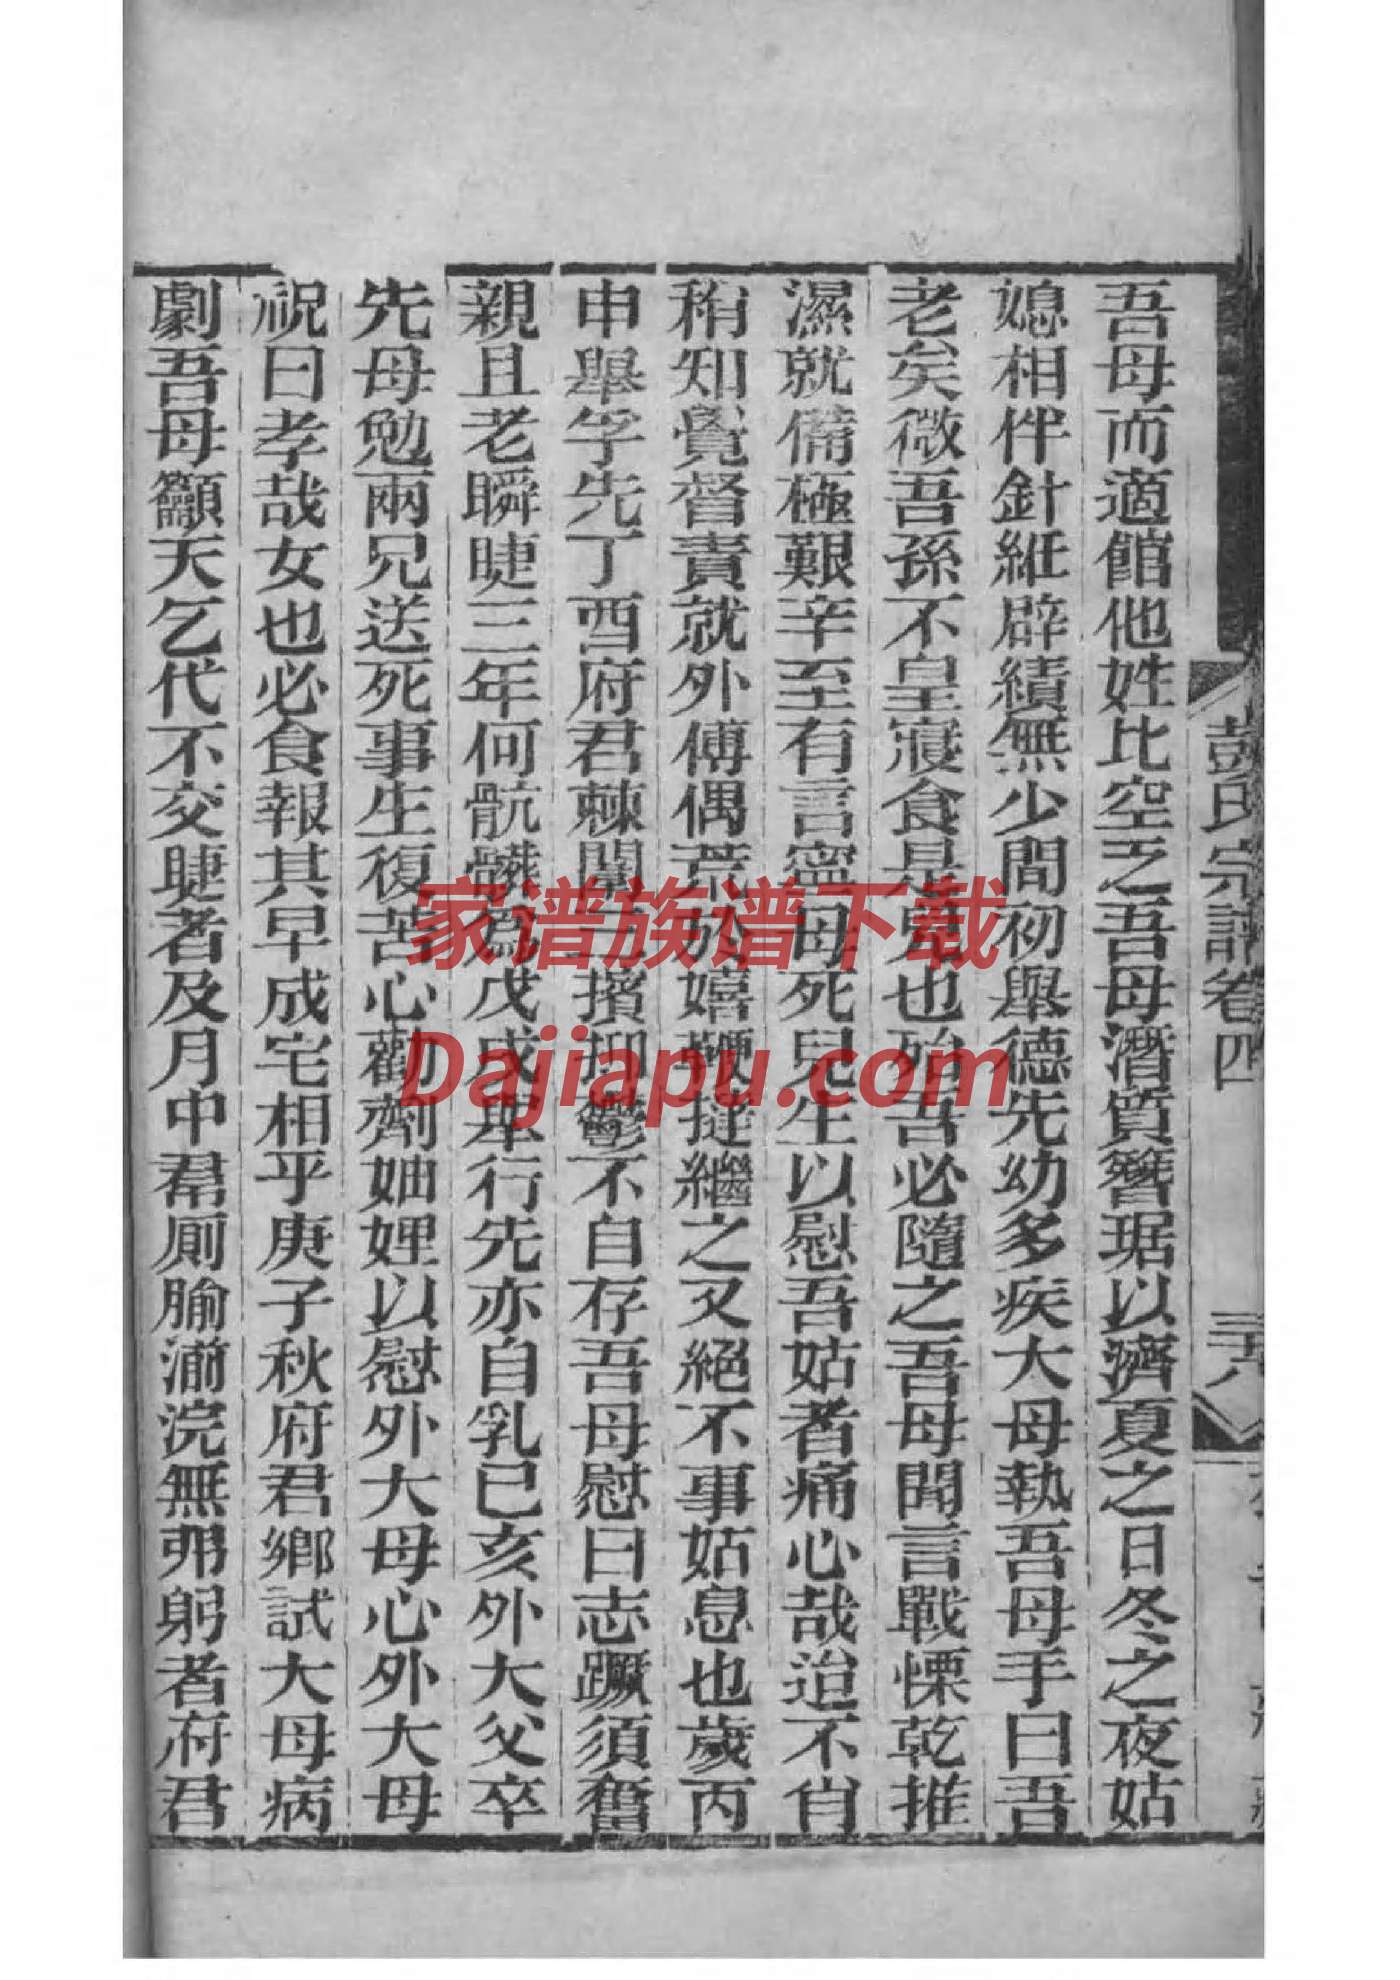 彭氏宗譜卷四
三十八
吾母而適館他姓比空乏吾母潛質簪琚以濟夏之日冬之夜姑
媳相伴針紝辟績無少間初舉德先幼多疾大母執吾母手曰吾
老矣微吾孫不皇寢食是兒也殆吾必隨之吾母聞言戰慄乾推
濕就備極艱辛至有言寧母死兒生以慰吾姑者痛心哉迨不肖
稍知覺督責就外傅偶荒於嬉鞭撻繼之又絕不事姑息也歲丙
申舉孚先丁酉府君棘闈已擯抑鬱不自存吾母慰曰志蹶須奮
親且老瞬睫三年何骯髒為戊戌舉行先亦自乳已亥外大父卒
先母勉兩兄送死事生復苦心勸劑妯娌以慰外大母心外大母
祝曰孝哉女也必食報其早成宅相乎庚子秋府君鄉試大母病
劇吾母籲天乞代不交睫者及月中帬廁牏湔浣無弗躬者府君
家谱族谱下载
Dajiapu.com